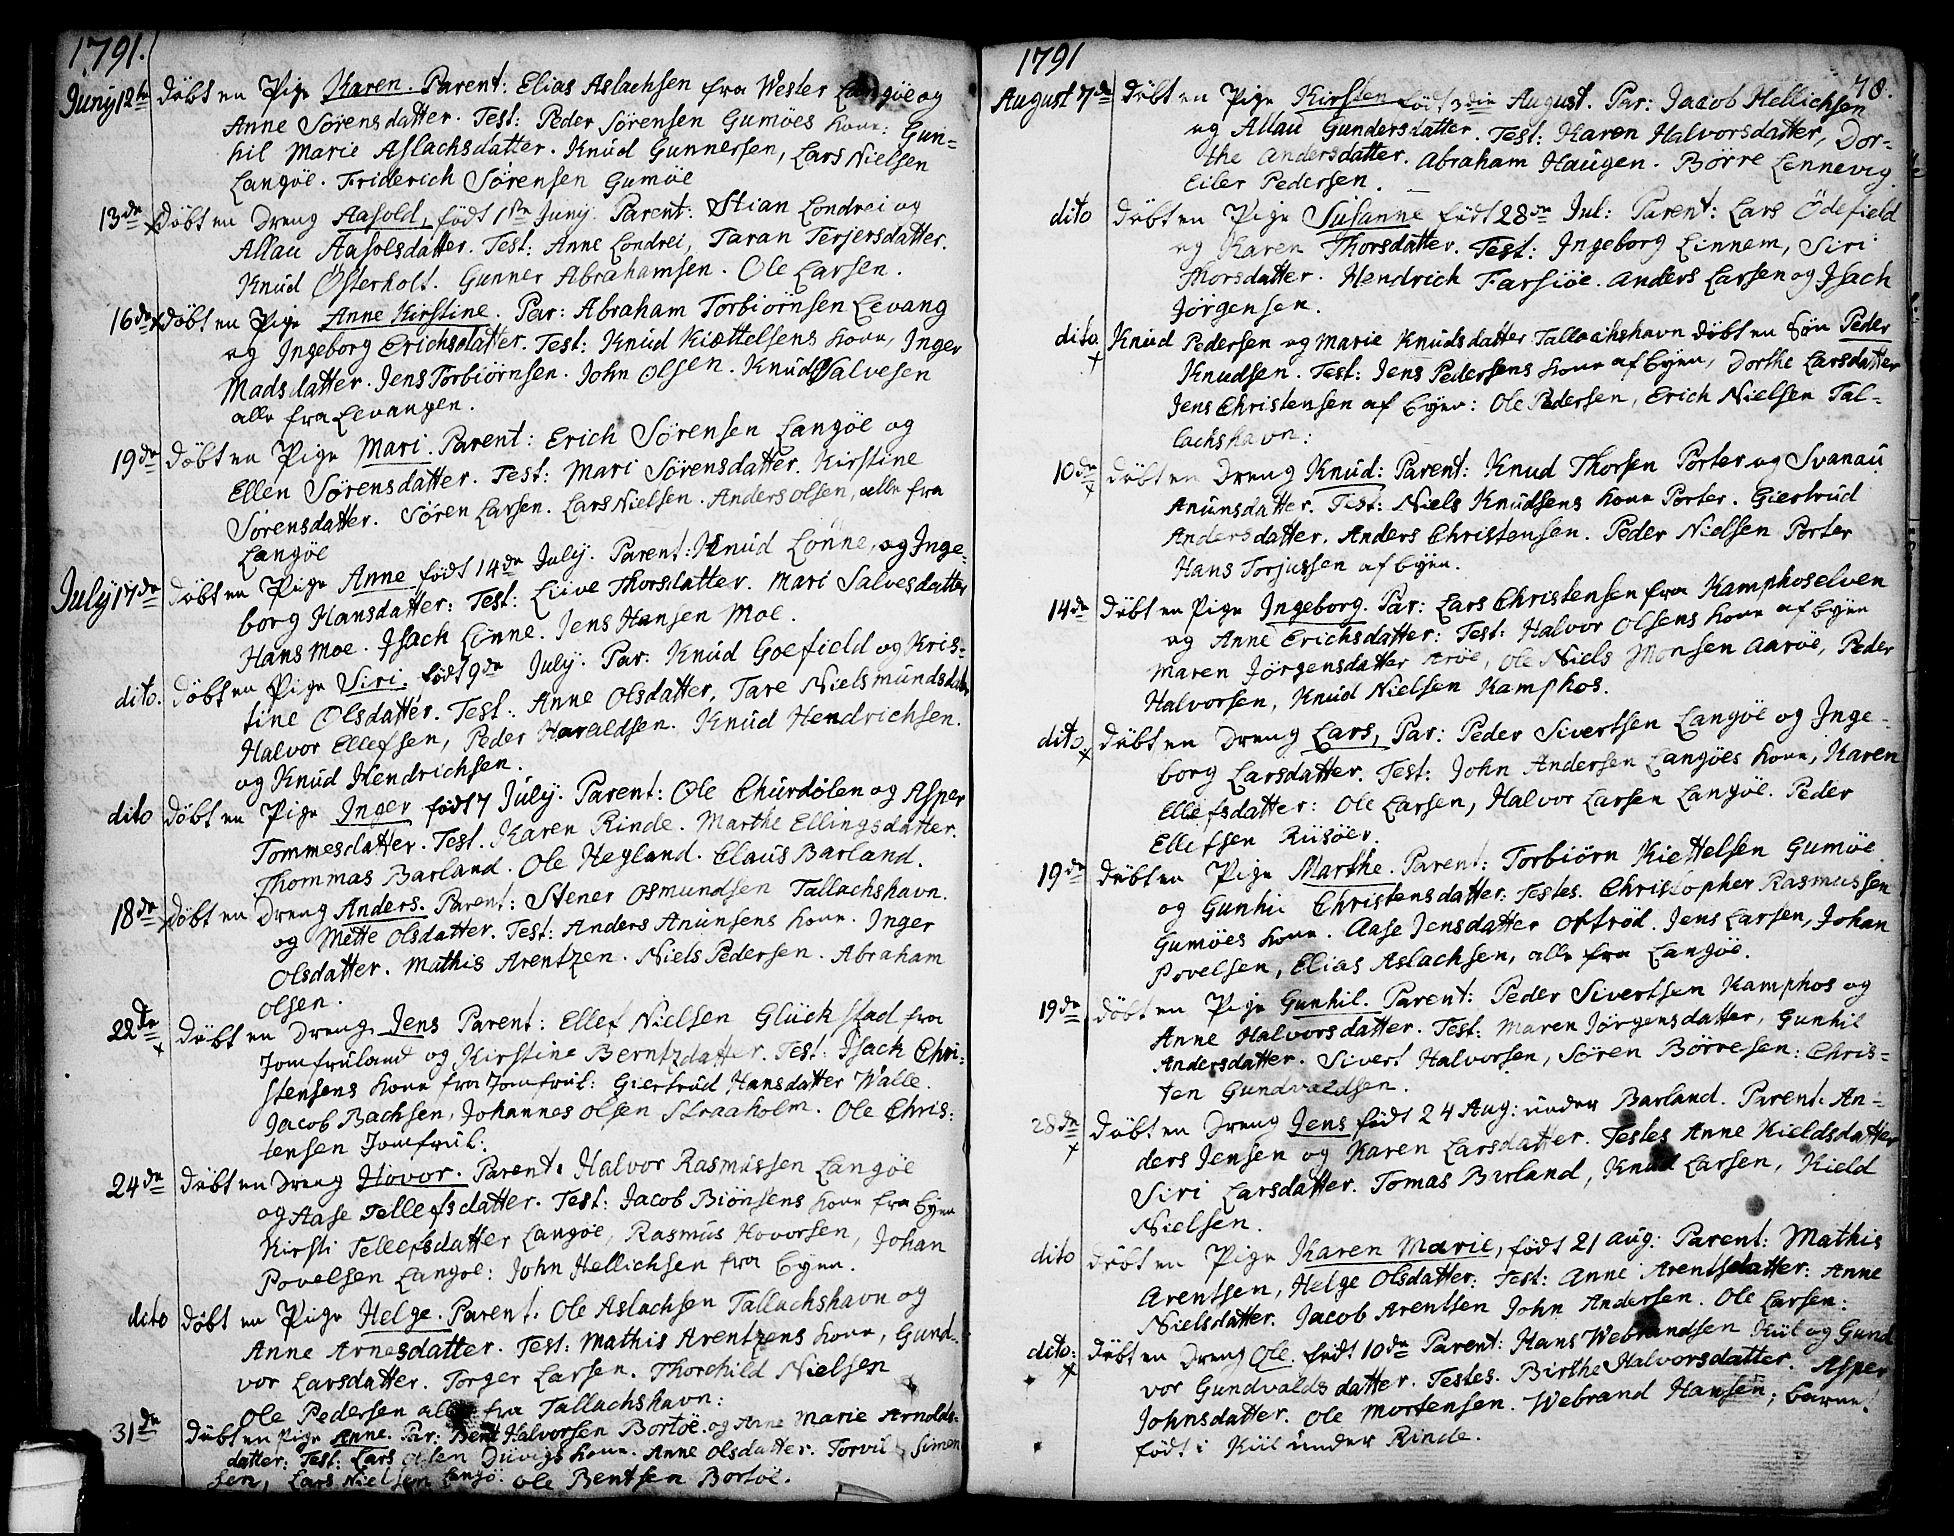 1791.
Juny 12te døbt en Pige Karen. Parent: Elias Aslachsen fra Wester Langøe og
Anne Sørensdatter. Test: Peder Sørensen Gumøes kone: Gun=
hil Marie Aslachsdatter. Knud Gunnersen, Lars Nielsen
Langøe. Friderich Sørensen Gumøe
13de x døbt en Dreng Aasold, født 1ste Juny. Parent: Stian Londrei og
Allau Aasolsdatter. Test: Anne Londrei, Taran Terjersdatter.
Knud Østerholt. Gunner Abrahamsen. Ole Larsen.
16de x døbt en Pige Anne Kirstine. Par: Abraham Torbiørnsen Levang
og Ingeborg Erichsdatter. Test: Knud Kiettelsens kone, Inger
Madsdatter. Jens Torbiørnsen. John Olsen. Knud Salvesen
alle fra Levangen.
19de døbt en Pige Mari. Parent: Erich Sørensen Langøe og
Ellen Sørensdatter. Test: Mari Sørensdatter. Kirstine
Sørensdatter. Søren Larsen. Lars Nielsen. Anders Olsen, alle fra
Langøe
July 17de døbt en Pige Anne født 14de July. Parent: Knud Lønne, og Inge=
borg Hansdatter: Test: Liive Thorsdatter. Mari Salvesdatter
Hans Moe. Isach Linne. Jens Hansen Moe.
dito. døbt en Pige Siri. født 9de July. Par: Knud Goefield og Kris=
tine Olsdatter. Test: Anne Olsdatter, Tare Nielsmundsdatter
Halvor Ellefsen, Peder Haraldsen. Knud Hendrichsen.
og Knud Hendrichsen.
dito døbt en Pige Inger født 7 July. Parent: Ole Churdølen og Asper
Tommesdatter. Test. Karen Rinde. Marthe Ellingsdatter.
Thommas Barland. Ole Hegland. Claus Barland.
18de x døbt en Dreng Anders. Parent: Stener Osmundsen Tallachshavn.
og Mette Olsdatter. Test: Anders Anunsens kone. Inger
Olsdatter. Mathis Arentzen. Niels Pedersen. Abraham
Olsen.
22de x døbt en Dreng Jens Parent: Ellef Nielsen Glückstad fra
Jomfruland og Kirstine Berntzdatter. Test: Isach Chri=
stensens kone fra Jomfrul: Giertrud Hansdatter Walle.
Jacob Bachsen, Johannes Olsen Straaholm. Ole Chris:
tensen Jomfrul:
24de døbt en Dreng Hovor. Parent: Halvor Rasmussen Langøe
og Aase Tellefsdatter. Test: Jacob Biønsens kone fra Eyen
Kirsti Tellefsdatter Langøe, Rasmus Hovorsen, Johan
Povelsen Langøe: John Hellichsen fra Eyen.
dito døbt en Pige Helge. Parent. Ole Aslachsen Tallachshavn og
Anne Arnesdatter. Test: Mathis Arentzens kone, Gund=
vor Larsdatter. Torger Larsen. Thorchild Nielsen
Ole Pedersen alle fra Tallachshavn:
31de døbt en Pige Anne. Par: Bent Halvorsen Bortøe. og Anne Marie Arnolds=
datter: Test: Lars Olsen Duevigs kone. Anne Olsdatter. Torvil Simen
sen, Lars Nielsen Langø: Ole Bentsen Bortøe.
1791
78.
August 7de døbt en Pige Kirsten født 3die August. Par: Jacob Hellichsen
og Allau Gundersdatter. Test: Karen Halvorsdatter, Dor=
the Andersdatter. Abraham Haugen. Børre Lennevig.
Eiler Pedersen.
dito døbt en Pige Susanne født 28de Jul: Parent: Lars Ødefield
og Karen Thorsdatter. Test: Ingeborg Linnem, Siri
Thorsdatter. Hendrich Farsiøe. Anders Larsen og Isach
Jørgensen.
dito x Knud Pedersen og Marie Knudsdatter Tallachshavn døbt en Søn Peder
Knudsen. Test: Jens Pedersens kone af Eyen, Dorthe Larsdatter
Jens Christensen af Eyen: Ole Pedersen, Erich Nielsen Tal=
lachshavn:
10de x døbt en Dreng Knud: Parent: Knud Thorsen Porter og Svanau
Anunsdatter. Test: Niels Knudsens kone Porter. Giertrud
Andersdatter. Anders Christensen. Peder Nielsen Porter
Hans Torjussen af Eyen.
14de døbt en Pige Ingeborg. Par: Lars Christensen fra Kamphoselven
og Anne Erichsdatter: Test: Halvor Olsens kone af Eyen
Maren Jørgensdatter Arøe, Ole Niels Monsen Aarøe, Peder
Halvorsen, Knud Nielsen Kamphos.
dito x døbt en Dreng Lars, Par: Peder Sivertsen Langøe og Inge=
borg Larsdatter. Test: John Andersen Langøes kone, Karen
Ellefsdatter: Ole Larsen, Halvor Larsen Langøe. Peder
Ellefsen Riisøer.
19de døbt en Pige Marthe. Parent: Torbiørn Kiettelsen Gumøe
og Gunhil Christensdatter: Testes. Christopher Rasmussen
Gumøes kone. Aase Jensdatter Oftrød. Jens Larsen, Johan
Povelsen, Elias Aslachsen, alle fra Langøe.
19de døbt en Pige Gunhil. Parent: Peder Sivertsen Kamphos og
Anne Halvorsdatter. Test: Maren Jørgensdatter, Gunhil
Andersdatter. Sivert Halvorsen, Søren Børresen: Chris=
ten Gundvaldsen.
28de x døbt en Dreng Jens født 24 Aug: under Barland. Parent: An=
ders Jensen og Karen Larsdatter. Testes Anne Kieldsdatter
Siri Larsdatter. Tomas Barland, Knud Larsen, Kield
Nielsen.
dito døbt en Pige Karen Marie, født 21 Aug: Parent: Mathis
Arentsen, Helge Olsdatter: Test: Anne Arentsdatter: Anne
Nielsdatter. Jacob Arentsen John Andersen. Ole Larsen:
dito: x døbt en Dreng Ole. født 10de Parent: Hans Webrandsen Kiil og Gund
vor Gundvaldsdatter. Testes. Birthe Halvorsdatter. Asper
Johnsdatter. Ole Mortensen. Webrand Hansen; barnet
født i Kiil under Rinde.